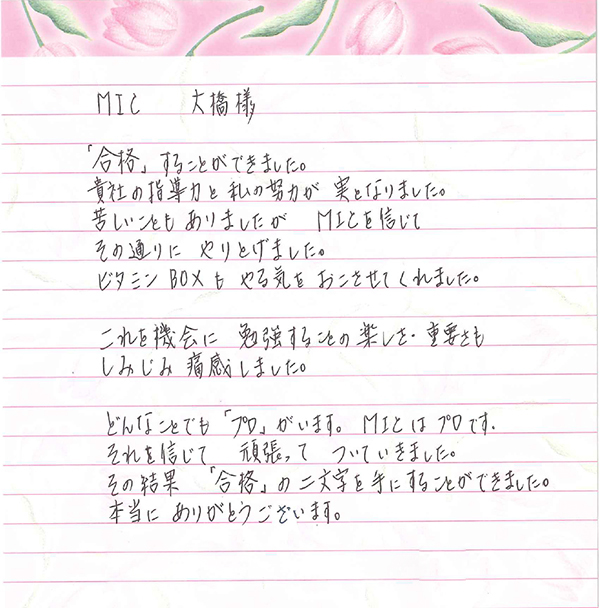 MIC 大橋様
「合格」することができました。
貴社の指導力と私の努力が 実となりました。
苦しいこともありましたが MICを信じて
その通りに やりとげました。
ビタミンBOXも やる気を おこさせてくれました。
これを機会に 勉強することの楽しさ・重要さも
しみじみ痛感しました。
どんなことでも「プロ」がいます。MICはプロです.
それを信じて 頑張って ついていきました。
その結果 「合格」の二文字を手にすることができました。
本当に ありがとうございます。